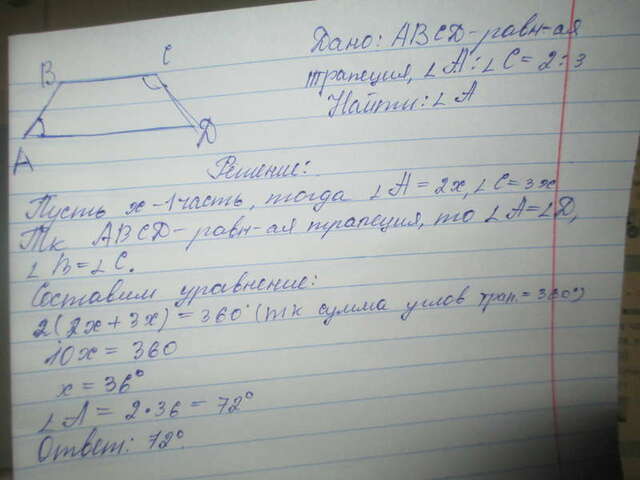 B
C
A
D
Дано: ABCD - равн-ая
трапеция, ∠A:∠C = 2:3
Найти: ∠A
Решение:
Пусть x - 1 часть, тогда ∠A = 2x, ∠C = 3x
Тк ABCD - равн-ая трапеция, то ∠A=∠D,
∠B=∠C.
Составим уравнение:
2(2x+3x) = 360° (тк сумма углов трап. = 360°)
10x = 360
x = 36°
∠A = 2•36 = 72°
Ответ: 72°.